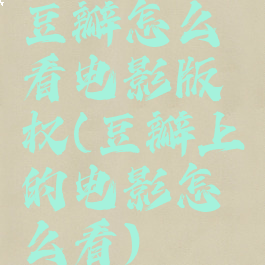 豆瓣怎么
看电影版
权(豆瓣上
的电影怎
么看)